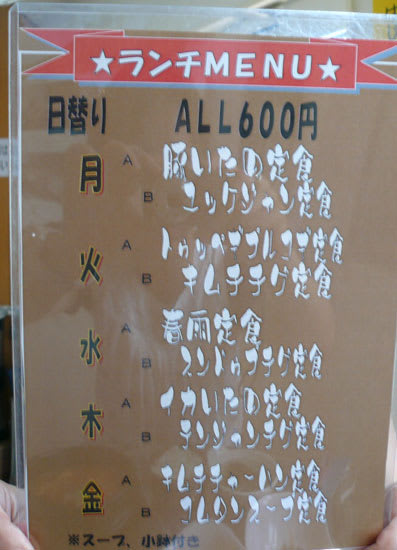 ★ランチMENU★
日替り ALL600円
月 A 豚いため定食
B ユッケジャン定食
火 A トゥッペギプルコギ定食
B キムチチゲ定食
水 A 春雨定食
B スンドゥブチゲ定食
木 A イカいため定食
B テンジャンチゲ定食
金 A キムチチャーハン定食
B コムタンスープ定食
※スープ、小鉢付き